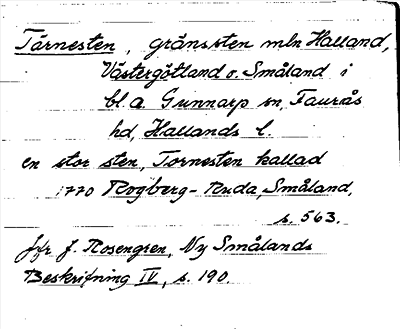 Tärnesten, gränssten mln Halland,
Västergötland o. Småland i
bl. a Gunnarp sn, Faurås
hd, Hallands l.
en stor sten, Tornesten kallad
1770 Rogberg - Ruda, Småland,
s. 563.
jfr J. Rosengren, Ny Smålands
Beskrifning IV, s. 190.